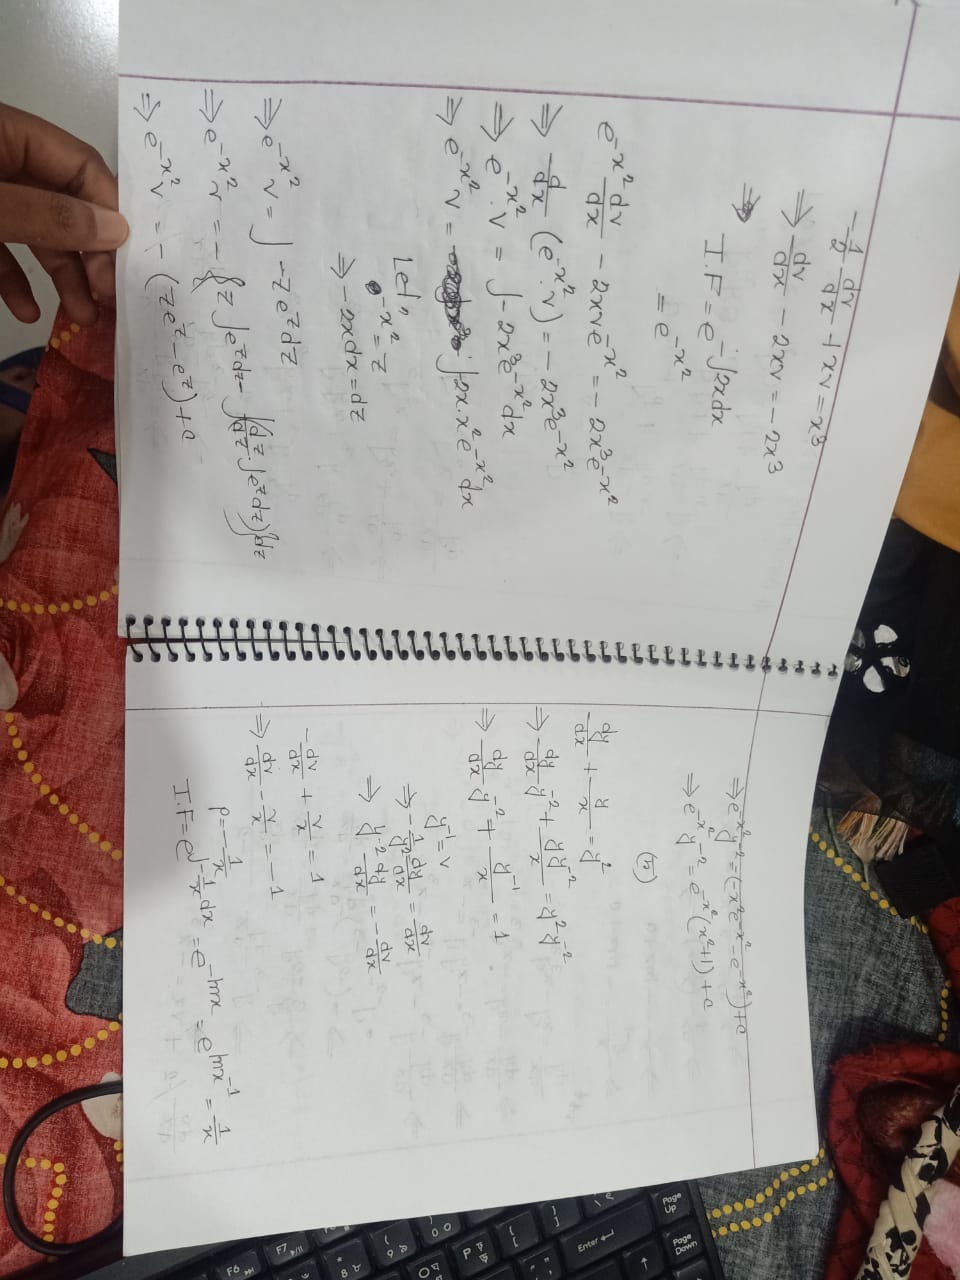 -1/2 dv/dx + xv = x³
⇒ dv/dx - 2xv = -2x³
⇒
I.F = e^-∫2xdx
= e^-x²
e^-x² dv/dx - 2xve^-x² = -2x³e^-x²
⇒ d/dx (e^-x².v) = -2x³e^-x²
⇒ e^-x².v = ∫-2x³e^-x²dx
⇒ e^-x²v = ∫-2x.x²e^-x²dx
Let,
-x² = z
⇒ -2xdx = dz
⇒ e^-x²v = ∫ -ze^z dz
⇒ e^-x²v = -{z∫e^z dz - ∫(dz/dz.∫e^z dz)}dz
⇒ e^-x²v = -(ze^z - e^z) + c
⇒ e^-x²y^-2 = (-x²e^-x² - e^-x²) + c
⇒ e^-x²y^-2 = e^-x²(x²+1) + c
(4)
dy/dx + y/x = y²
⇒ dy/dx y^-2 + yy^-2/x = y²y^-2
⇒ dy/dx y^-2 + y^-1/x = 1
y^-1 = v
⇒ -1/y² dy/dx = dv/dx
⇒ y^-2 dy/dx = -dv/dx
-dv/dx + v/x = 1
⇒ dv/dx - v/x = -1
P = -1/x
I.F = e^∫-1/x dx = e^-lnx = e^lnx^-1 = 1/x
Page Up
Page Down
Enter
F7
F6